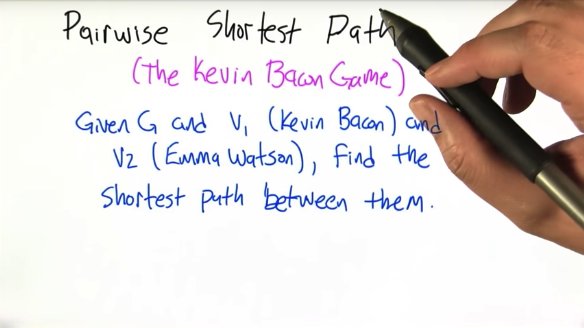 Pairwise Shortest Path
(The Kevin Bacon Game)
Given G and V1 (Kevin Bacon) and
V2 (Emma Watson), find the
shortest path between them.